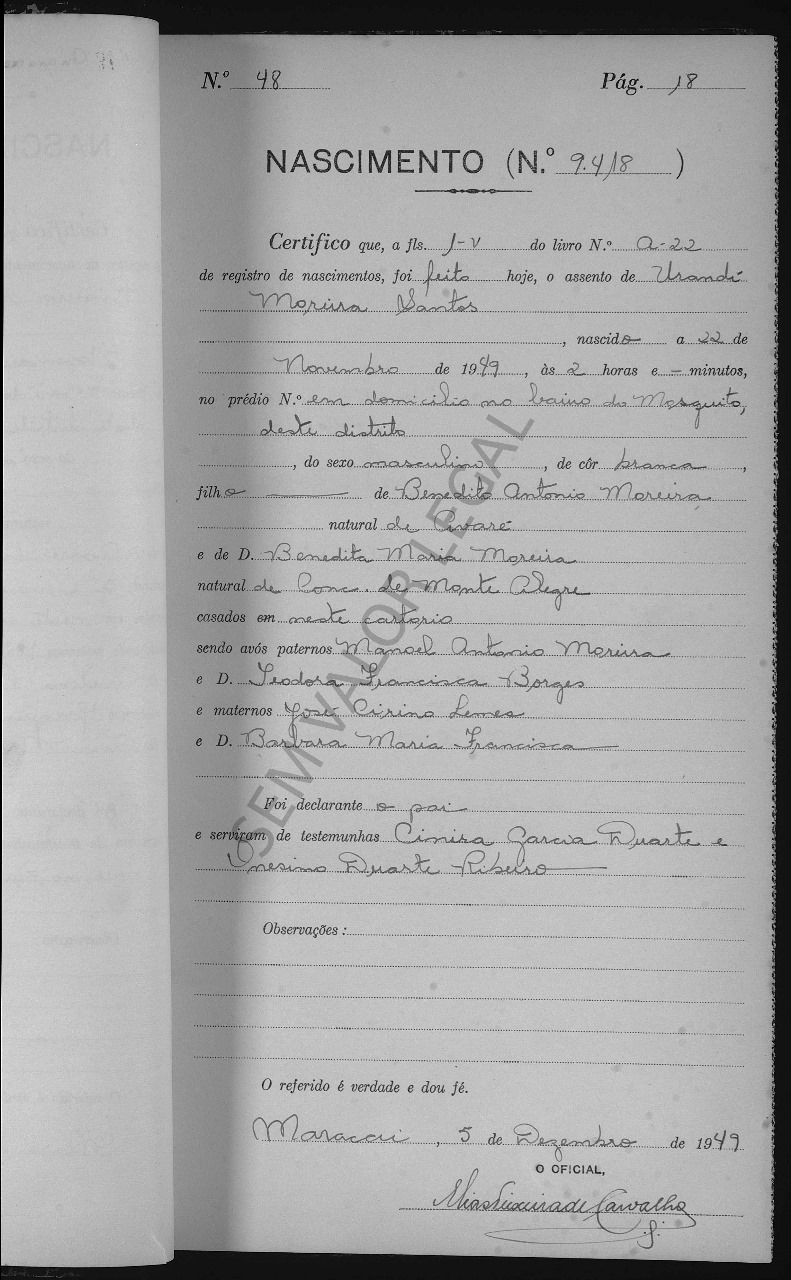 N.º 48 Pág. 18
NASCIMENTO (N.º 9.418)
Certifico que, a fls. 1-v do livro N.º A-22
de registro de nascimentos, foi feito hoje, o assento de Urandi
Moreira Santos
, nascido a 22 de
Novembro de 1949, às 2 horas e — minutos,
no prédio N.º em domicilio no bairro do Mosquito,
deste distrito
, do sexo masculino, de côr branca,
filho — de Benedito Antonio Moreira
natural de Avaré
e de D. Benedita Maria Moreira
natural de Conc. de Monte Alegre
casados em neste cartorio
sendo avós paternos Manoel Antonio Moreira
e D. Teodora Francisca Borges
e maternos José Cirino Lemes
e D. Barbara Maria Francisca
Foi declarante o pai
e serviram de testemunhas Cinira Garcia Duarte e
Onesimo Duarte Ribeiro
Observações :
O referido é verdade e dou fé.
Maracai, 5 de Dezembro de 1949
O OFICIAL,
Elias Teixeira de Carvalho
SEM VALOR LEGAL